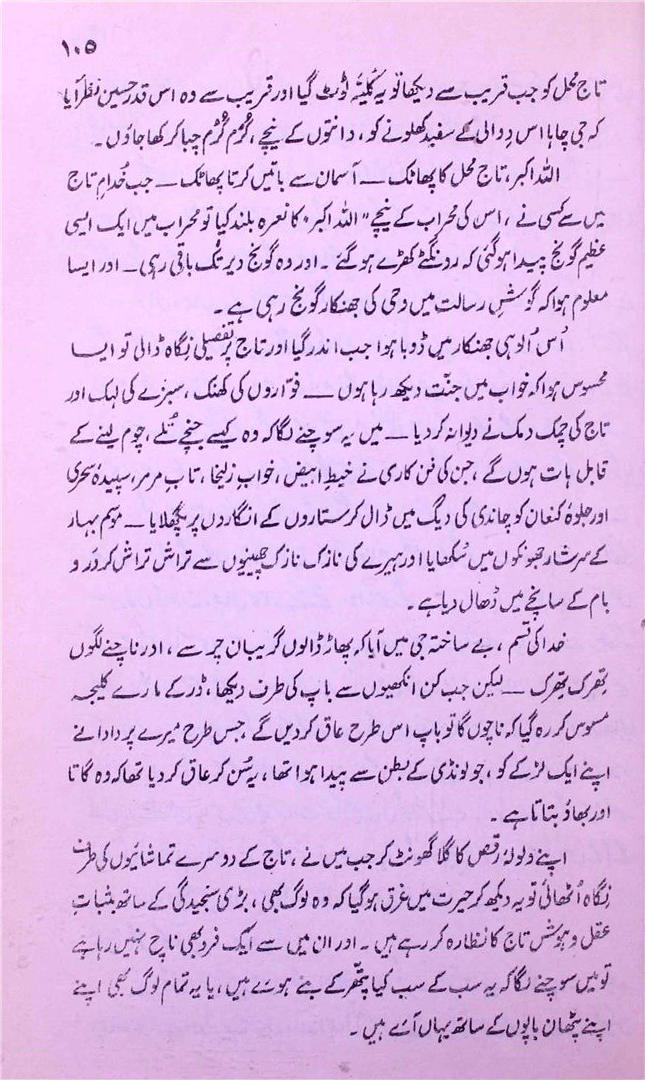 ۱۰۵
تاج محل کو جب قریب سے دیکھا تو یہ کُلیّہ ٹوٹ گیا اور قریب سے وہ اس قدر حسین نظر آیا
کہ جی چاہا اس دوالی کے سفید کھلونے کو، دانتوں کے نیچے، کُڑم کُڑم چبا کر کھا جاؤں۔
اللہ اکبر، تاج محل کا پھاٹک — آسمان سے باتیں کرتا پھاٹک — جب خُدامِ تاج
میں سے کسی نے، اس کی محراب کے نیچے "اللہ اکبر" کا نعرہ بلند کیا تو محراب میں ایک ایسی
عظیم گونج پیدا ہو گئی کہ رونگٹے کھڑے ہو گئے۔ اور وہ گونج دیر تک باقی رہی — اور ایسا
معلوم ہوا کہ گوشِ رسالت میں وحی کی جھنکار گونج رہی ہے۔
اُس اُلوہی جھنکار میں ڈوبا ہوا جب اندر گیا اور تاج پر تفصیلی نگاہ ڈالی تو ایسا
محسوس ہوا کہ خواب میں جنّت دیکھ رہا ہوں — فوّاروں کی کھنک، سبزے کی لہک اور
تاج کی چمک دمک نے دیوانہ کر دیا — میں یہ سوچنے لگا کہ وہ کیسے جنچے تُلے، چوم لینے کے
قابل ہات ہوں گے، جن کی فن کاری نے خیطِ ابیض، خوابِ زلیخا، تابِ مرمر، سپیدۂ سحری
اور جلوۂ کنعان کو چاندی کی دیگ میں ڈال کر ستاروں کے انگاروں پر پگھلایا — موسم بہار
کے سرشار جھونکوں میں سُکھایا اور ہیرے کی نازک نازک چھینیوں سے تراش تراش کر در و
بام کے سانچے میں ڈھال دیا ہے۔
خدا کی قسم، بے ساختہ جی میں آیا کہ پھاڑ ڈالوں گریبان چر سے، اور ناچنے لگوں
تھرک تھرک — لیکن جب کن انکھیوں سے باپ کی طرف دیکھا، ڈر کے مارے کلیجہ
مسوس کر رہ گیا کہ ناچوں گا تو باپ اس طرح عاق کر دیں گے، جس طرح میرے پردادا نے
اپنے ایک لڑکے کو، جو لونڈی کے بطن سے پیدا ہوا تھا، یہ سُن کر عاق کر دیا تھا کہ وہ گاتا
اور بھاؤ بتاتا ہے۔
اپنے ولولۂ رقص کا گلا گھونٹ کر جب میں نے، تاج کے دوسرے تماشائیوں کی طرف
نگاہ اُٹھائی تو یہ دیکھ کر حیرت میں غرق ہو گیا کہ وہ لوگ بھی، بڑی سنجیدگی کے ساتھ بثباتِ
عقل و ہوش تاج کا نظارہ کر رہے ہیں۔ اور ان میں سے ایک فرد بھی ناچ نہیں رہا ہے
تو میں سوچنے لگا کہ یہ سب کے سب کیا پتھّر کے بنے ہوئے ہیں، یا یہ تمام لوگ بھی اپنے
اپنے پٹھان باپوں کے ساتھ یہاں آئے ہیں۔